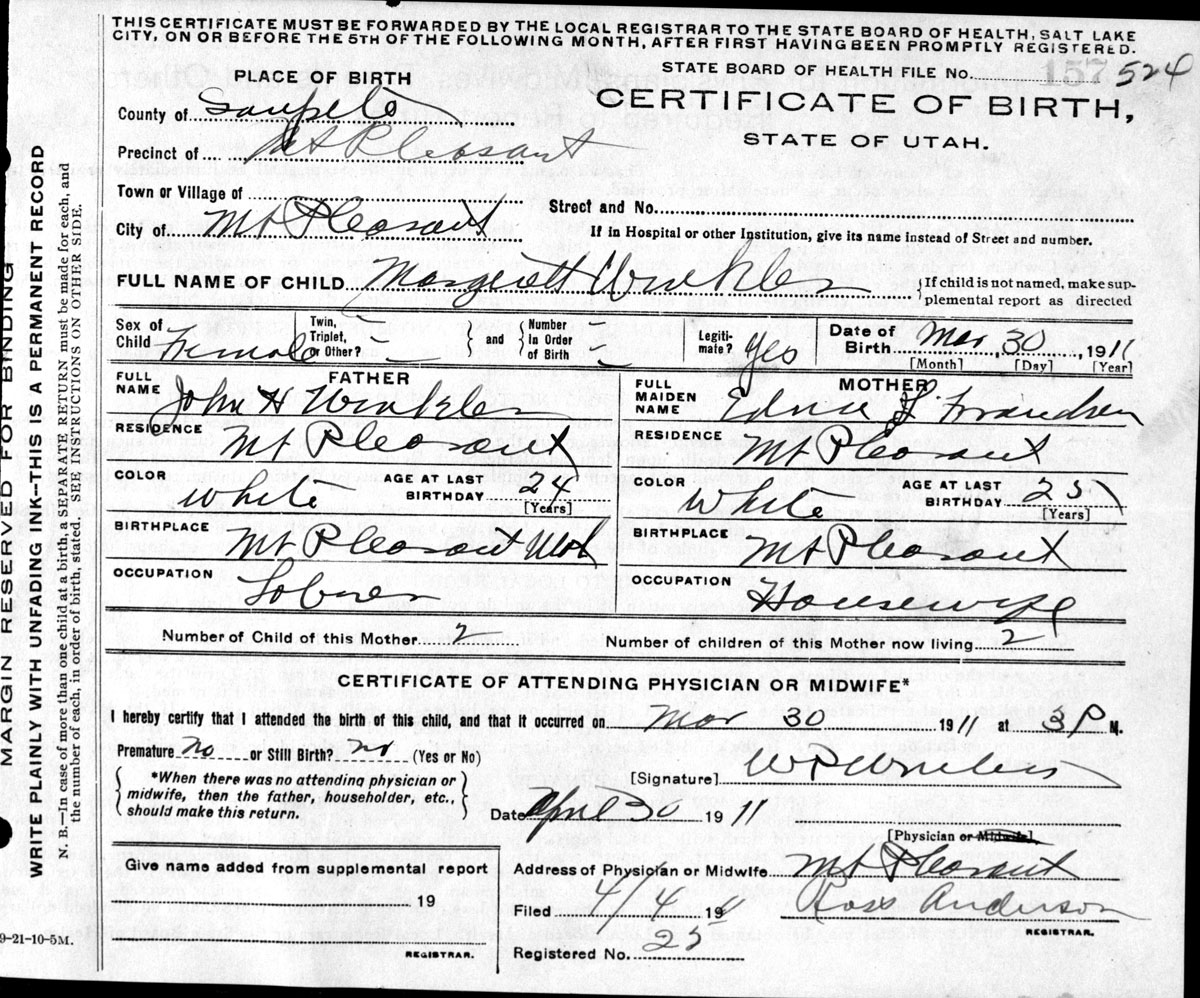 THIS CERTIFICATE MUST BE FORWARDED BY THE LOCAL REGISTRAR TO THE STATE BOARD OF HEALTH, SALT LAKE
CITY, ON OR BEFORE THE 5TH OF THE FOLLOWING MONTH, AFTER FIRST HAVING BEEN PROMPTLY REGISTERED.
STATE BOARD OF HEALTH FILE No. 157 524
PLACE OF BIRTH
CERTIFICATE OF BIRTH,
STATE OF UTAH.
County of Sanpete
Precinct of Mt Pleasant
Town or Village of
Street and No.
City of Mt Pleasant
If in Hospital or other Institution, give its name instead of Street and number.
FULL NAME OF CHILD Margrett Winkler { If child is not named, make sup-
plemental report as directed
Sex of Child Female
Twin, Triplet, or Other? —
} and {
Number In Order of Birth —
Legiti- mate? Yes
Date of Birth Mar 30, 1911
[Month] [Day] [Year]
FATHER
FULL NAME John H Winkler
RESIDENCE Mt Pleasant
COLOR White
AGE AT LAST BIRTHDAY 24
[Years]
BIRTHPLACE Mt Pleasant Utah
OCCUPATION Laborer
MOTHER
FULL MAIDEN NAME Edna F Frandsen
RESIDENCE Mt Pleasant
COLOR White
AGE AT LAST BIRTHDAY 25
[Years]
BIRTHPLACE Mt Pleasant
OCCUPATION Housewife
Number of Child of this Mother 2
Number of children of this Mother now living 2
CERTIFICATE OF ATTENDING PHYSICIAN OR MIDWIFE*
I hereby certify that I attended the birth of this child, and that it occurred on Mar 30 1911 at 3 P M.
Premature no or Still Birth? no (Yes or No)
{ *When there was no attending physician or
midwife, then the father, householder, etc.,
should make this return. }
[Signature] W P
Date April 30 1911
[Physician or Midwife]
Give name added from supplemental report
19
REGISTRAR.
Address of Physician or Midwife Mt Pleasant
Filed 4/4 1911
Ross Anderson
REGISTRAR.
Registered No. 25
9-21-10-5M.
MARGIN RESERVED FOR BINDING
WRITE PLAINLY WITH UNFADING INK—THIS IS A PERMANENT RECORD
N. B.—In case of more than one child at a birth, a SEPARATE RETURN must be made for each, and
the number of each, in order of birth, stated. SEE INSTRUCTIONS ON OTHER SIDE.